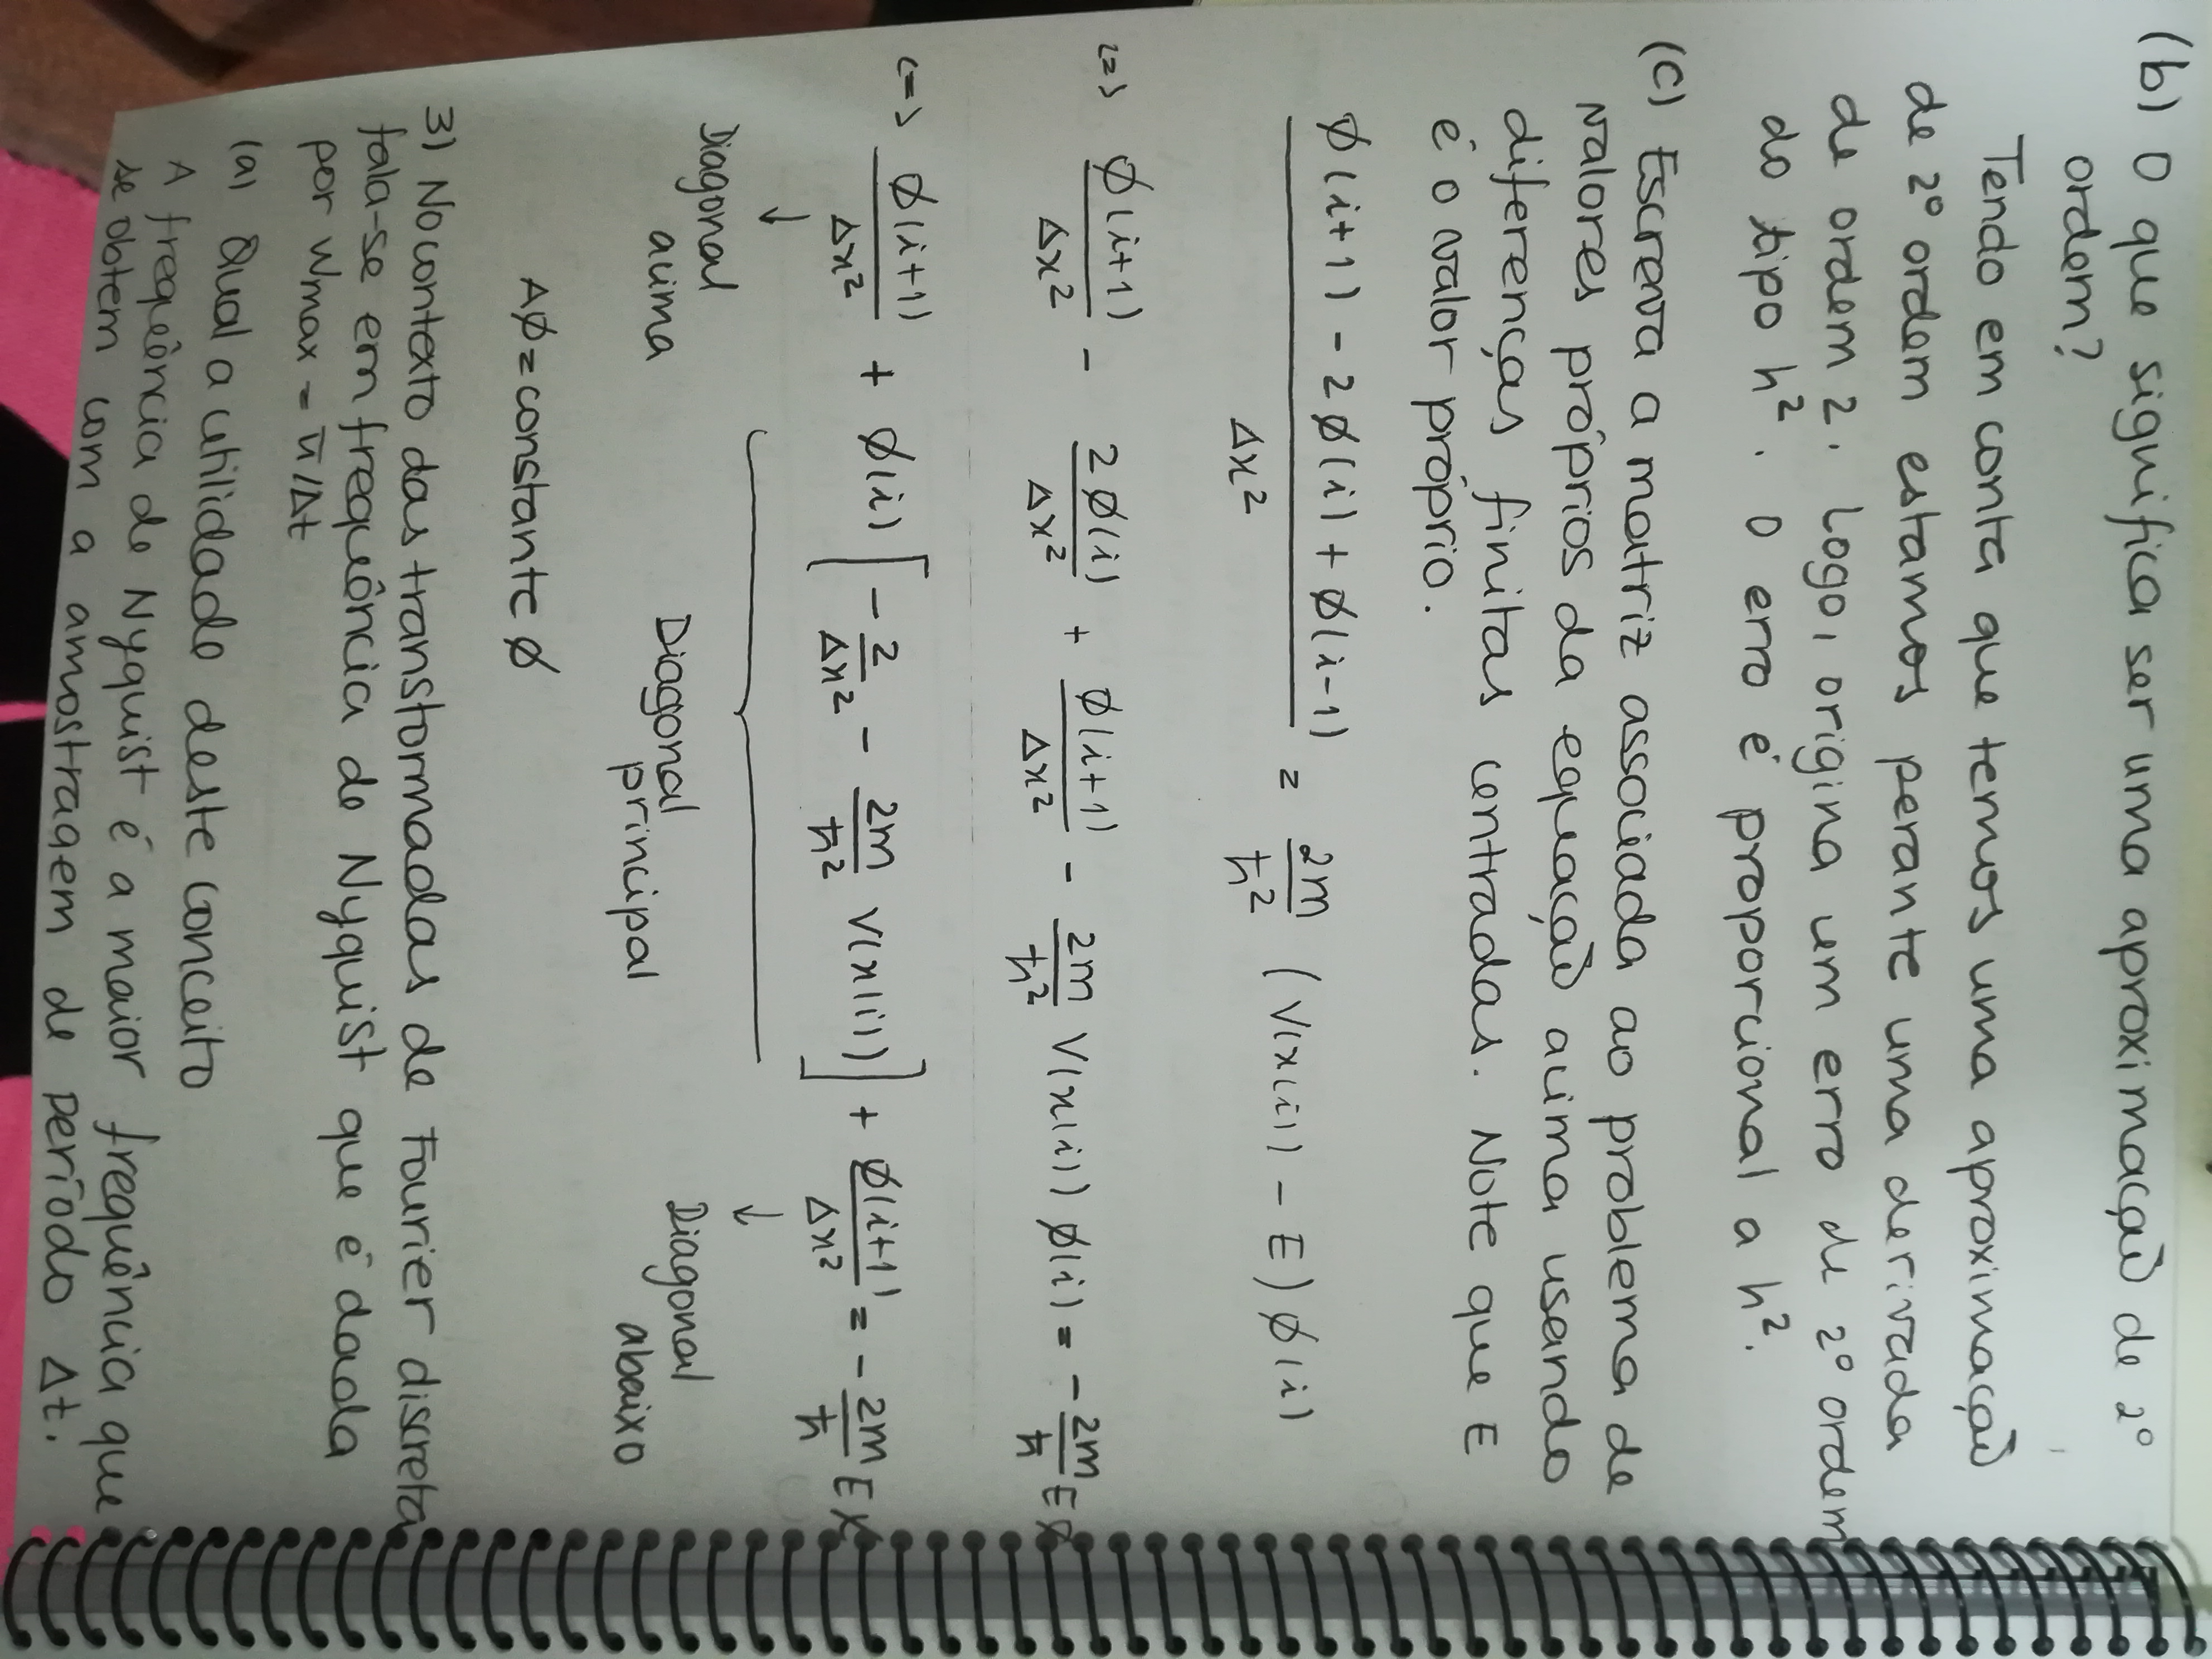 (b) O que significa ser uma aproximação de 2º
ordem?
Tendo em conta que temos uma aproximação
de 2º ordem estamos perante uma derivada
de ordem 2. Logo, origina um erro de 2º ordem
do tipo h². O erro é proporcional a h².
(c) Escreva a matriz associada ao problema de
valores próprios da equação acima usando
diferenças finitas centradas. Note que E
é o valor próprio.
(ø(i+1) - 2ø(i) + ø(i-1))/Δx² = 2m/ħ² (V(x(i)) - E) ø(i)
(=) ø(i+1)/Δx² - 2ø(i)/Δx² + ø(i+1)/Δx² - 2m/ħ² V(x(i)) ø(i) = - 2m/ħ E ø
(=) ø(i+1)/Δx² + ø(i) [ - 2/Δx² - 2m/ħ² V(x(i)) ] + ø(i+1)/Δx² = - 2m/ħ E
↓ ↓
Diagonal acima
Diagonal principal
Diagonal abaixo
Aø = constante ø
3) No contexto das transformadas de Fourier discreta
fala-se em frequência de Nyquist que é dada
por Wmax = π/Δt
(a) Qual a utilidade deste conceito
A frequência de Nyquist é a maior frequência que
se obtem com a amostragem de período Δt.